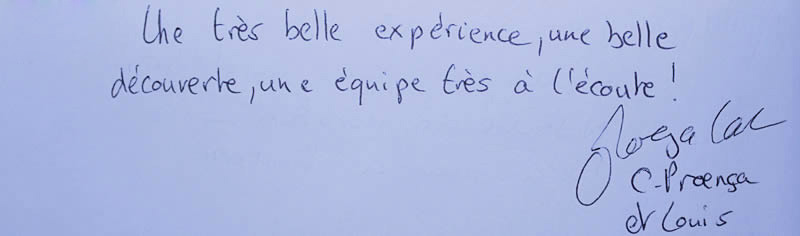 Une très belle expérience, une belle
découverte, une équipe très à l'écoute !
C. Proença
et Louis